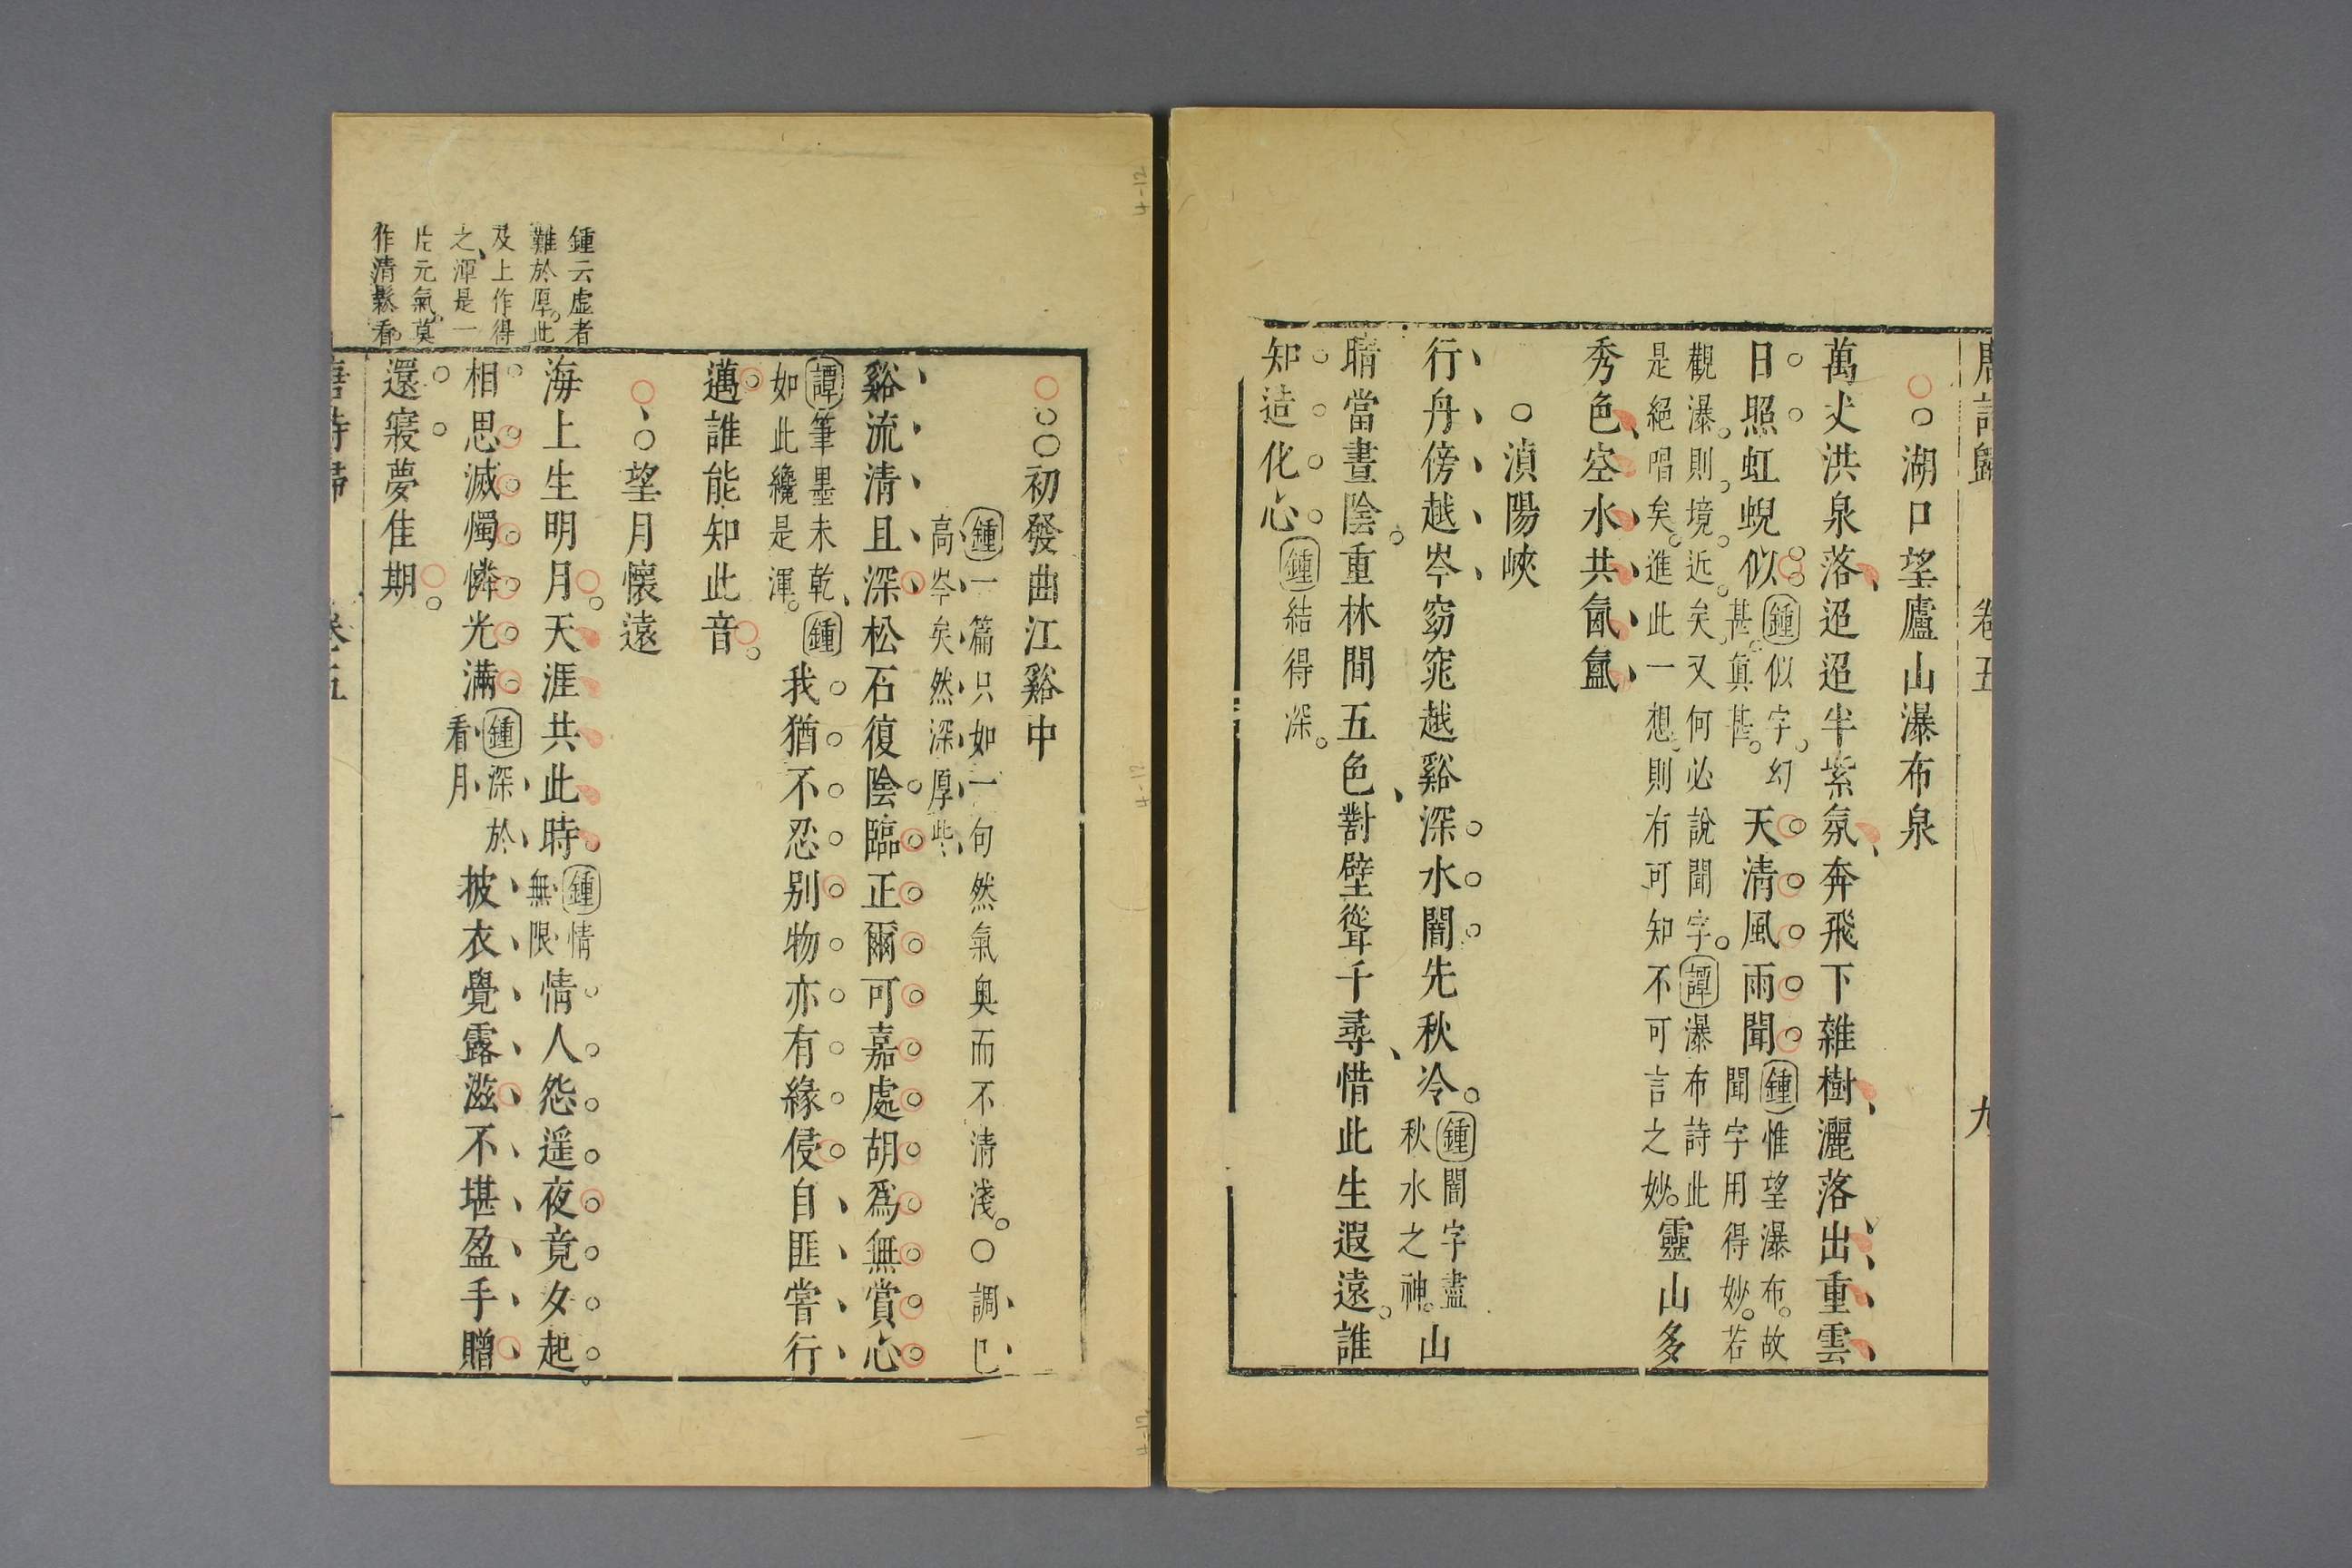 唐詩歸 卷五 九
湖口望廬山瀑布泉
萬丈洪泉落迢迢半紫氛奔飛下雜樹灑落出重雲
日照虹蜺似鍾似字幻甚真甚天清風雨聞鍾惟望瀑布故聞字用得妙若
觀瀑則境近矣又何必說聞字譚瀑布詩此是絕唱矣進此一想則有可知不可言之妙靈山多
秀色空水共氤氳
湞陽峽
行舟傍越岑窈窕越谿深水闇先秋冷鍾闇字盡秋水之神山
晴當晝陰重林間五色對壁聳千尋惜此生遐遠誰
知造化心鍾結得深
初發曲江谿中
鍾一篇只如一句然氣奥而不清淺○調已高岑矣然深厚此
谿流清且深松石復陰臨正爾可嘉處胡爲無賞心
譚筆墨未乾鍾如此纔是渾我猶不忍别物亦有緣侵自匪嘗行
邁誰能知此音
望月懷遠
鍾云虛者
難於厚此
及上作得
之渾是一
片元氣莫
作清鬆看
海上生明月天涯共此時鍾情無限情人怨遥夜竟夕起
相思滅燭憐光滿鍾深於看月披衣覺露滋不堪盈手贈
還寢夢佳期
唐詩歸 卷五 十